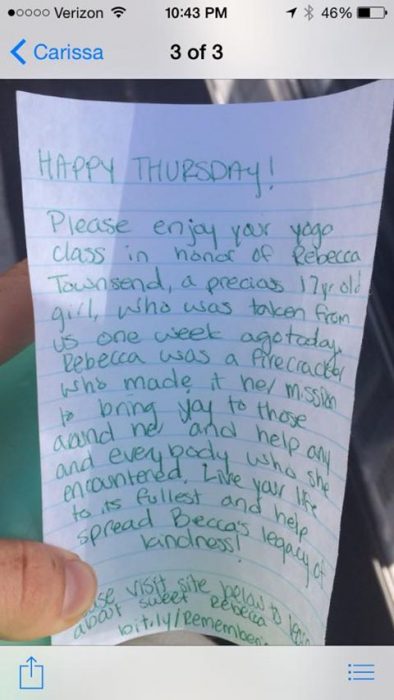 Verizon 10:43 PM 46%
Carissa 3 of 3
HAPPY THURSDAY!
Please enjoy your yoga
class in honor of Rebecca
Townsend, a precious 17yr old
girl, who was taken from
us one week ago today.
Rebecca was a firecracker
who made it her mission
to bring yay to those
around her and help any
and everybody who she
encountered. Live your life
to its fullest and help
spread Becca's legacy of
kindness!
visit site below to learn
about sweet Rebecca
bit.ly/Remember